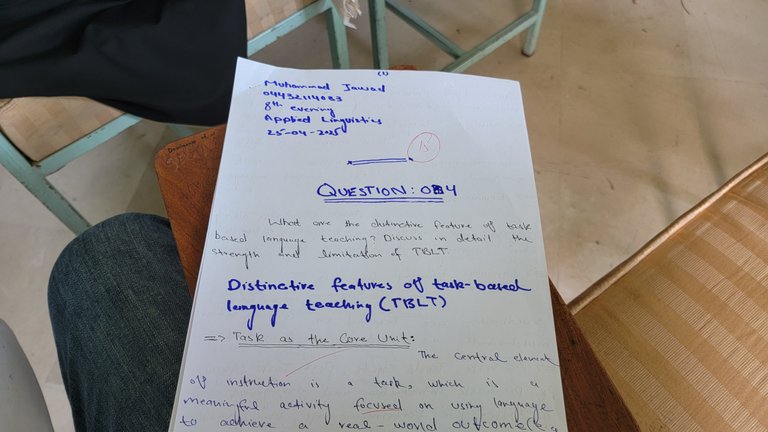 (1)
Muhammad Jawad
04432114083
8th evening
Applied Linguistics
25-04-2025
QUESTION: 04
What are the distinctive feature of task
based language teaching? Discuss in detail the
strength and limitation of TBLT.
Distinctive features of task-based
language teaching (TBLT)
=> Task as the Core Unit:
The central element
of instruction is a task, which is a
meaningful activity focused on using language
to achieve a real-world outcome (e.g